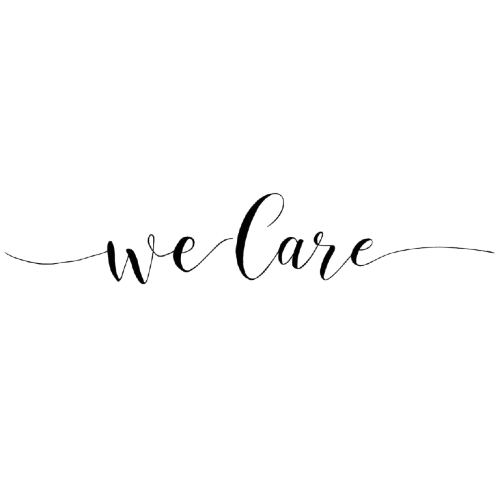 we Care